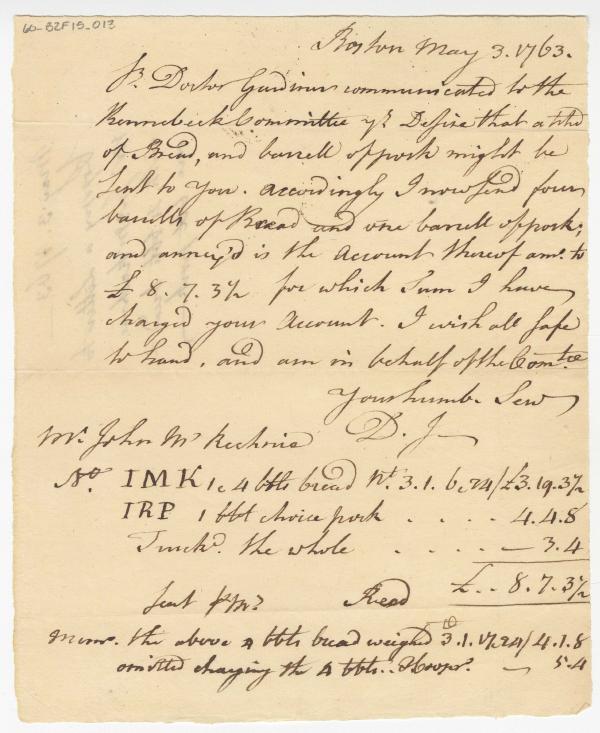 60-B2F15-013
Boston May 3. 1763.
Sr. Doctor Gardiner communicated to the
Kennebeck Committee yr. Desire that a
of Bread, and barrell of pork might be
sent to you. accordingly I now send four
barrells of Bread and one barrell of pork;
and annex'd is the Account thereof amo. to
£ 8. 7. 3½ for which Sum I have
charged your Account. I wish all safe
to hand, and am in behalf of the Comtee.
Your humb. Serv
D. J
Mr. John Mc Kechnie
No. IMK 4 bbls bread Wt. 3. 1. 6 24/ £3. 19. 3½
IRP 1 bbl choice pork . . . . 4. 4. 8
Truckg. the whole . . . . — 3. 4
£ . . 8. 7. 3½
Sent Read
Memo. the above 4 bbls bread weighed 3. 1. 17 24/ 4. 1. 8
omitted charging the 4 bbls . . Hoopg. — 5. 4